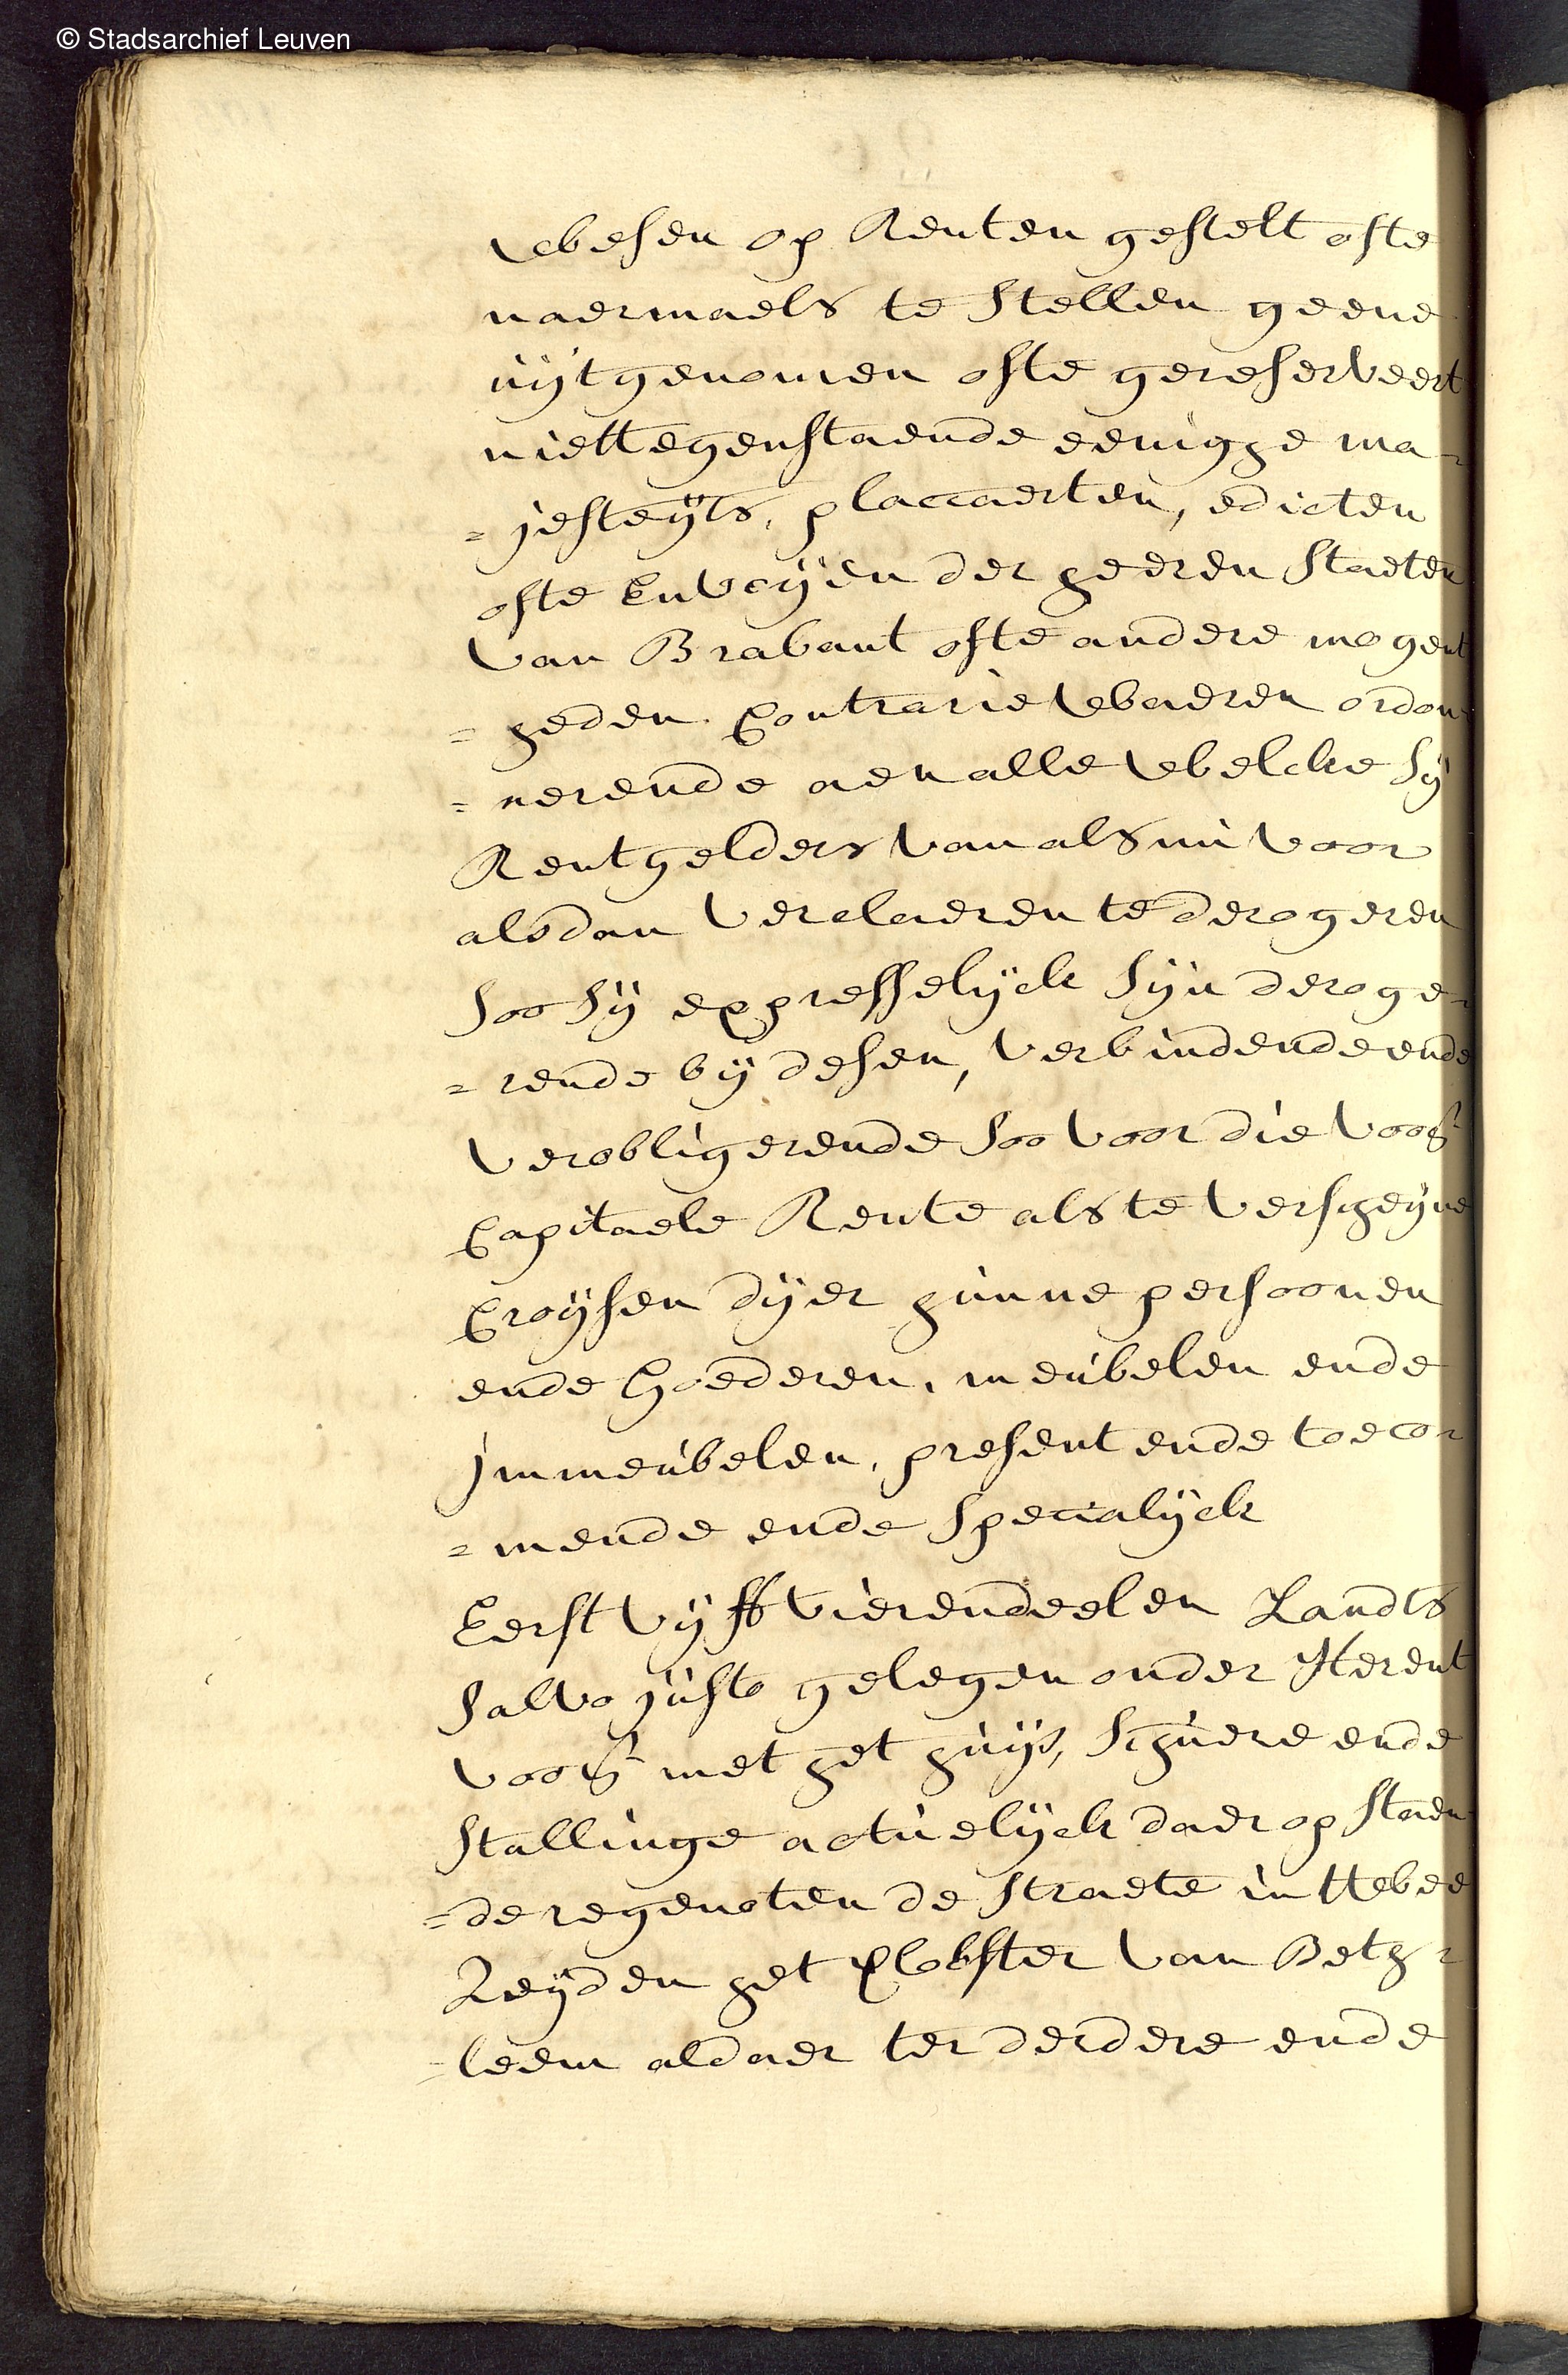 © Stadsarchief Leuven
wesen op Renten gestelt ofte
naermaels te stellen geene
uijtgenomen ofte gereserveert
niettegenstaende eenighe ma=
=jesteijts, placcaerten, edicten
ofte Envoijen der heeren Staeten
van Brabant ofte andere mogent
=heden Contrarie waeren ordon=
=nerende aen alle welcke sij
Rentgelders van als nu voor
alsdan verclaeren te derogeren
soo sij expresselijck sijn deroge=
=rende bij desen, verbindende ende
verobligerende soo voor die voors
Capitaele Rente als te verscheijne
Croijsen dijer hunne persoonen
ende goederen, meubelen ende
immeubelen, present ende toeco=
=mende ende specialijck
Eerst vijff vierendeelen Landts
salvo justo gelegen onder Herent
voors met het huijs, schuere ende
stallinge actuelijck daer op staen
=de regenoten de straete in twee
Zeijden het Clooster van Beth=
=leem aldaer ter derdere ende